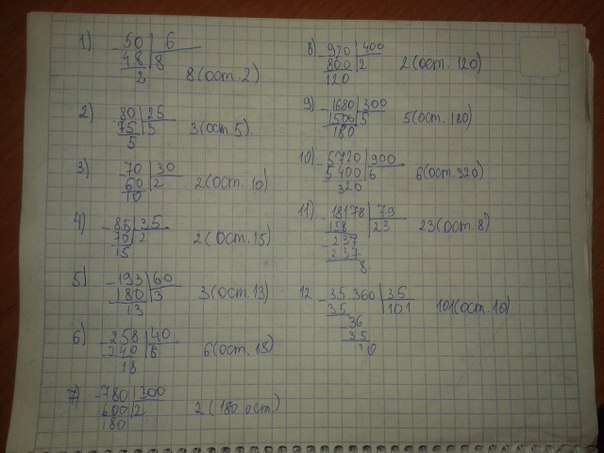 1) 50 | 6
48 | 8
2
8 (ост. 2)
2) 80 | 25
75 | 3
5
3 (ост. 5)
3) 70 | 30
60 | 2
10
2 (ост. 10)
4) 85 | 35
70 | 2
15
2 (ост. 15)
5) 193 | 60
180 | 3
13
3 (ост. 13)
6) 258 | 40
240 | 6
18
6 (ост. 18)
7) 780 | 300
600 | 2
180
2 (180 ост.)
8) 920 | 400
800 | 2
120
2 (ост. 120)
9) 1680 | 300
1500 | 5
180
5 (ост. 180)
10) 5720 | 900
5400 | 6
320
6 (ост. 320)
11) 18178 | 79
158 | 23
237
237
8
23 (ост. 8)
12 35 360 | 35
35 | 101
36
35
10
101 (ост. 10)